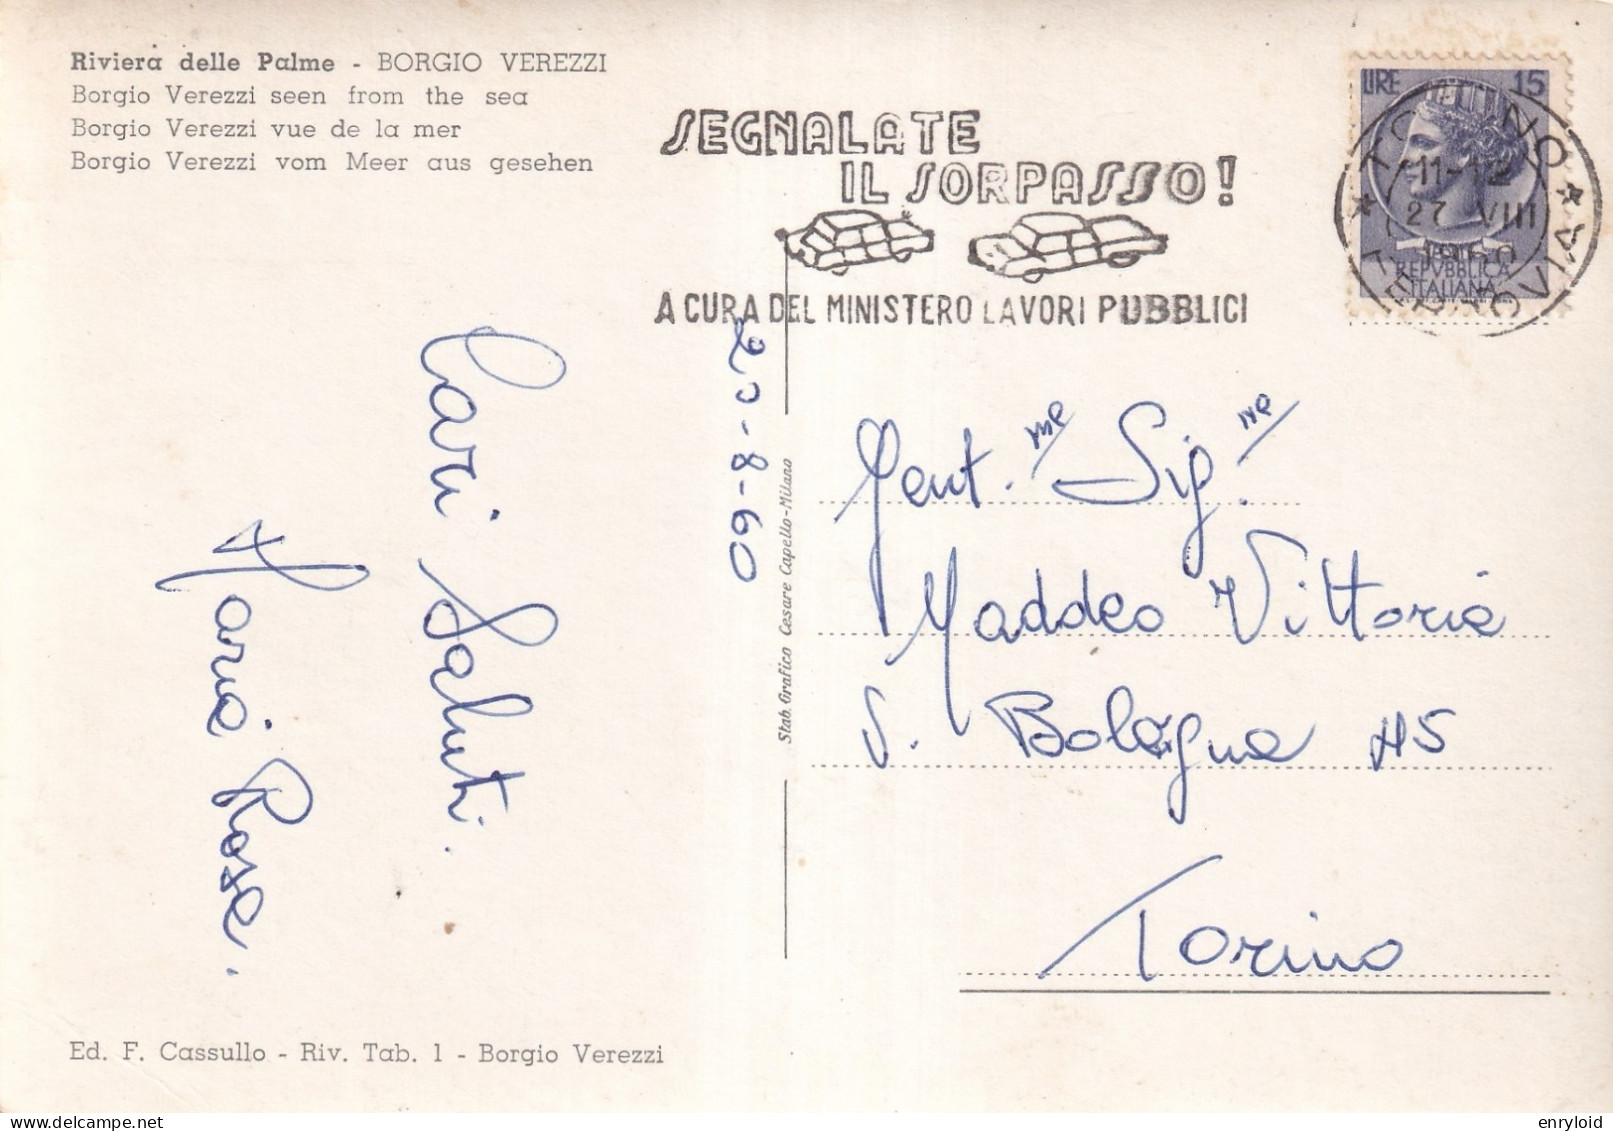 Riviera delle Palme - BORGIO VEREZZI
Borgio Verezzi seen from the sea
Borgio Verezzi vue de la mer
Borgio Verezzi vom Meer aus gesehen
SEGNALATE
IL SORPASSO!
A CURA DEL MINISTERO LAVORI PUBBLICI
LIRE 15
REPVBBLICA
ITALIANA
TORINO
FERROVIA
11-12
27 VIII
1960
20-8-60
Cari Saluti.
Maria Rosa.
Stab. Grafico Cesare Capello-Milano
Gent.me Sig.ne
Maddeo Vittoria
V. Bologna 45
Torino
Ed. F. Cassullo - Riv. Tab. 1 - Borgio Verezzi
enryloid